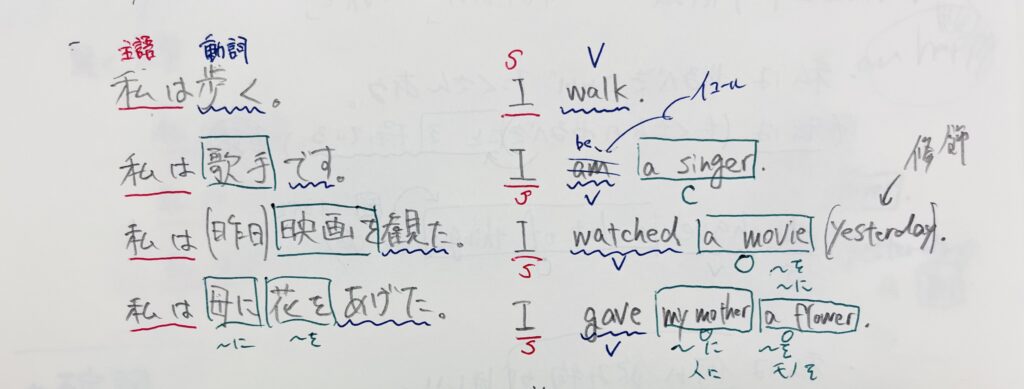 主語 動詞 S V
私は歩く。 I walk. イコール
be
私は歌手です。 I am a singer. 修飾
S V C
私は(昨日)映画を観た。 I watched a movie (yesterday).
S V O ～を
～に
私は母に花をあげた。 I gave my mother a flower.
～に ～を S V O O
～に ～を
人に モノを